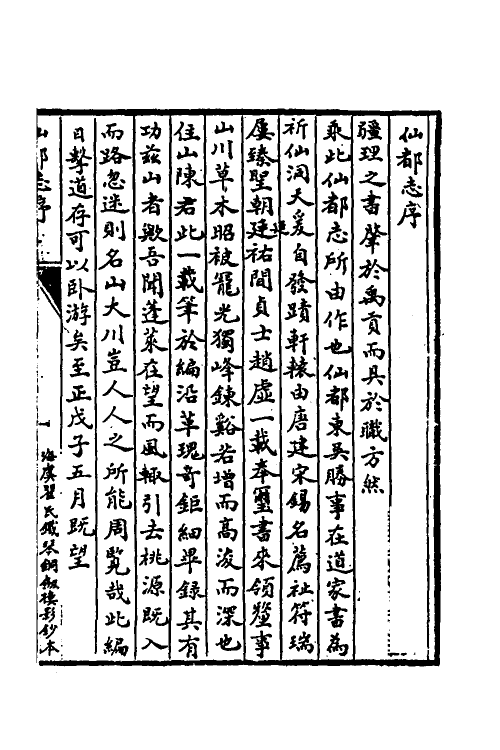 仙都志序
疆理之書肇於禹貢而具於職方然
乘此仙都志所由作也仙都東吳勝事在道家書為
祈仙洞天爰自發蹟軒轅由唐建宋錫名薦祉符瑞
屢臻聖朝延祐間貞士趙虛一載奉璽書來領釐事
山川草木昭被寵光獨峰鍊谿若增而高浚而深也
住山陳君此一載筆於編沿革瑰奇鉅細畢錄其有
功茲山者歟吾聞蓬萊在望而風輒引去桃源既入
而路忽迷則名山大川豈人人之所能周覽哉此編
目擊道存可以卧游矣至正戊子五月既望
仙都序
一
海虞瞿氏鐵琴銅劍樓影鈔本